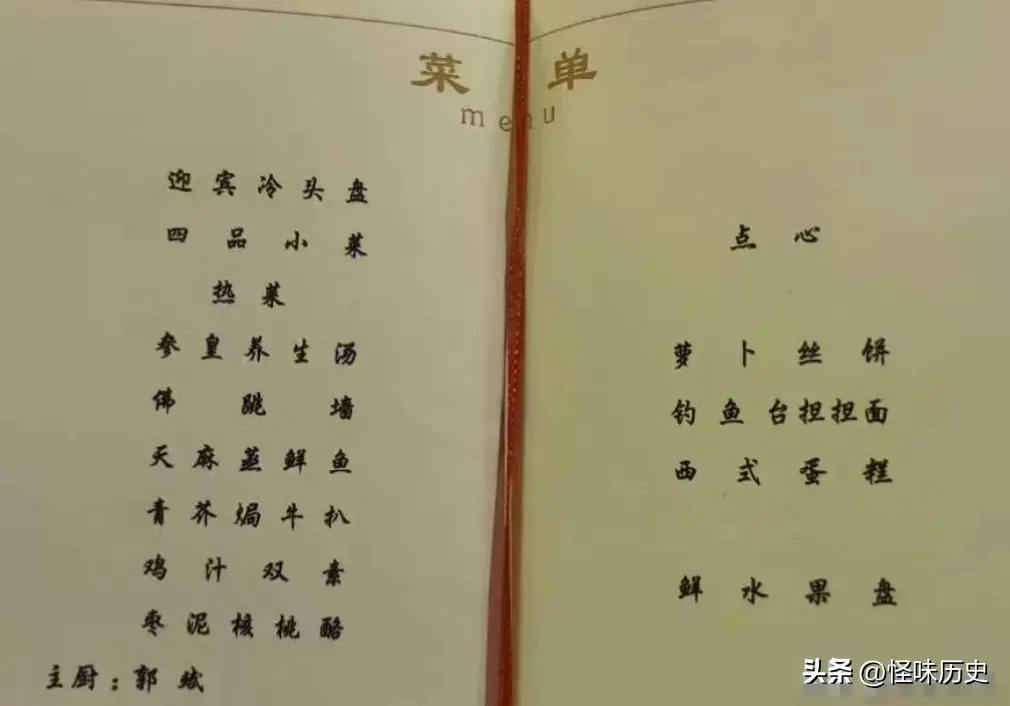 菜单
menu
迎宾冷头盘
四品小菜
热菜
参皇养生汤
佛跳墙
天麻蒸鲜鱼
青芥焗牛扒
鸡汁双素
枣泥核桃酪
主厨：郭斌
点心
萝卜丝饼
钓鱼台担担面
西式蛋糕
鲜水果盘
头条 @怪味历史